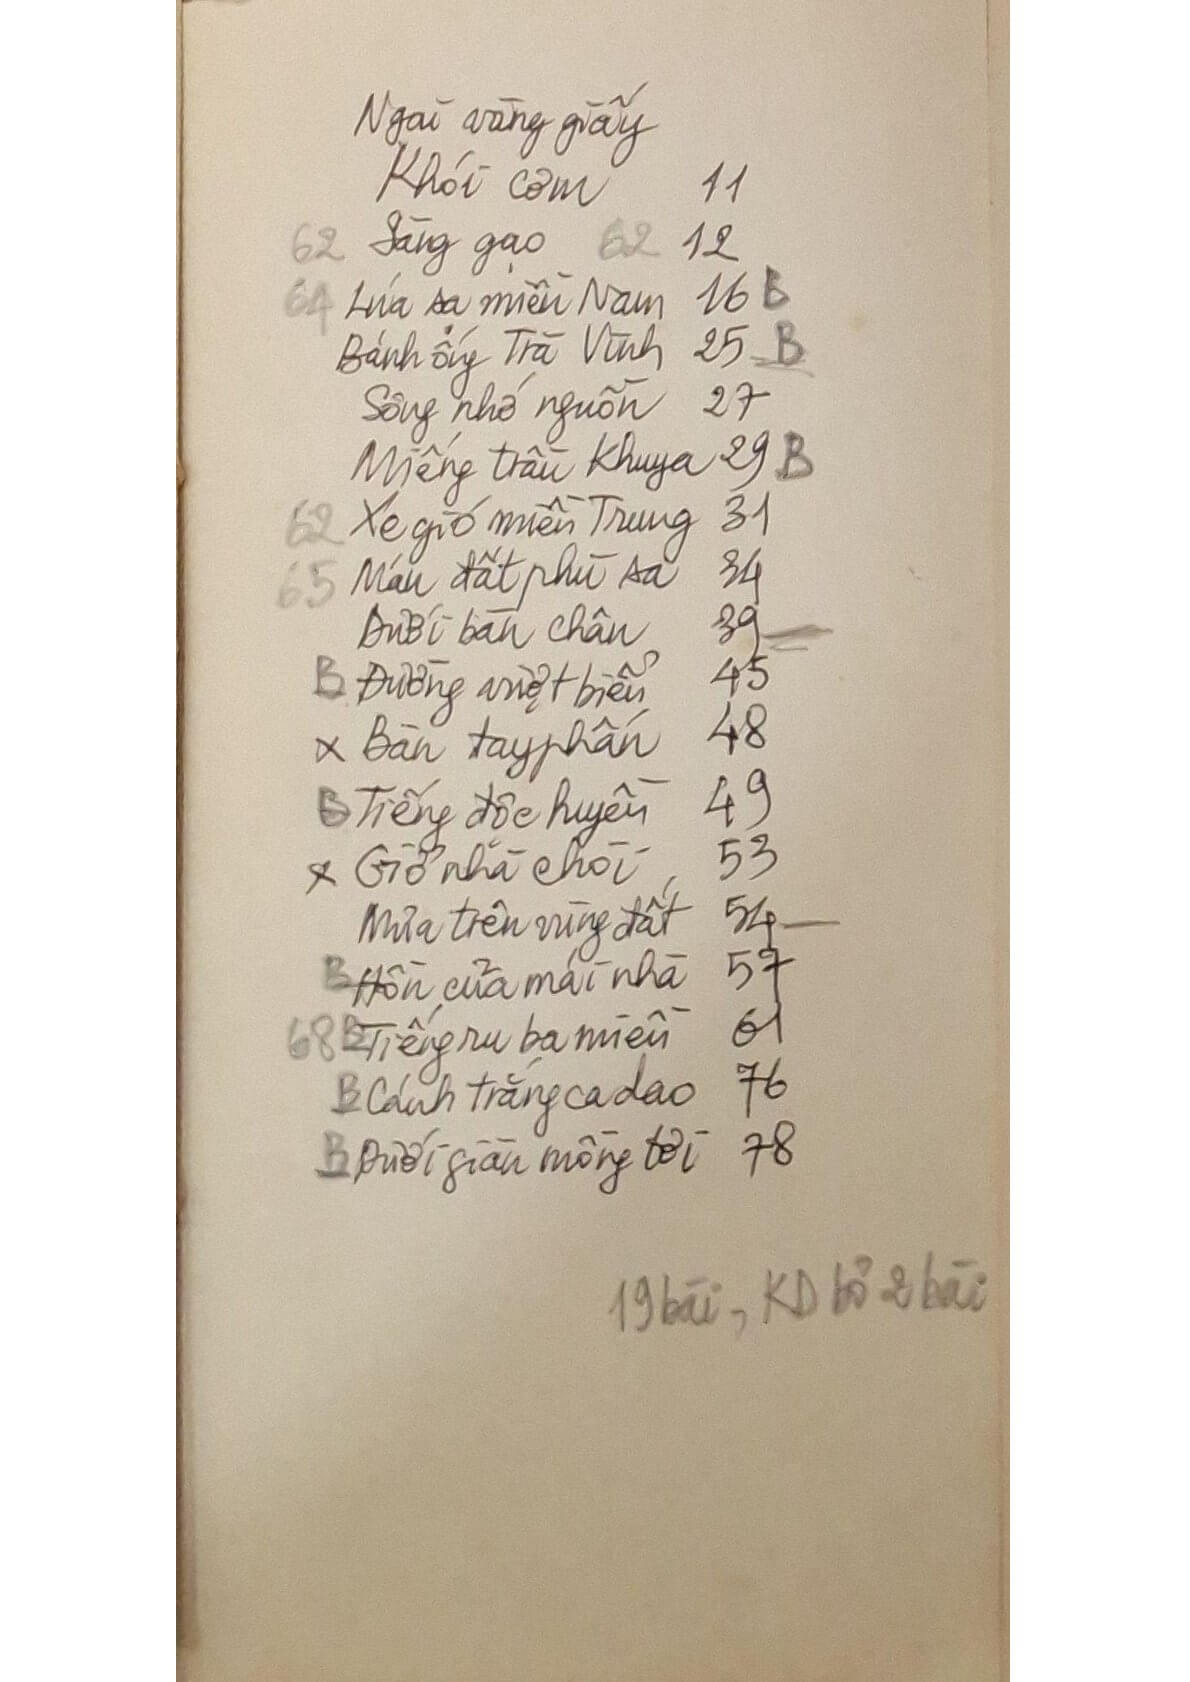 Ngai vàng giấy
Khói cơm 11
62 Sàng gạo 62 12
64 Lúa sạ miền Nam 16 B
Bánh ống Trà Vinh 25 B
Sông nhớ nguồn 27
Miếng trầu khuya 29 B
62 Xe gió miền Trung 31
65 Máu đất phù sa 34
Dưới bàn chân 39
B Đường vượt biển 45
x Bàn tay phấn 48
B Tiếng độc huyền 49
x Giở nhà chơi 53
Mưa trên vùng đất 54
B Hồn của mái nhà 57
68 B Tiếng ru ba miền 61
B Cánh trắng ca dao 76
B Dưới giàn mồng tơi 78
19 bài, KD bỏ 2 bài